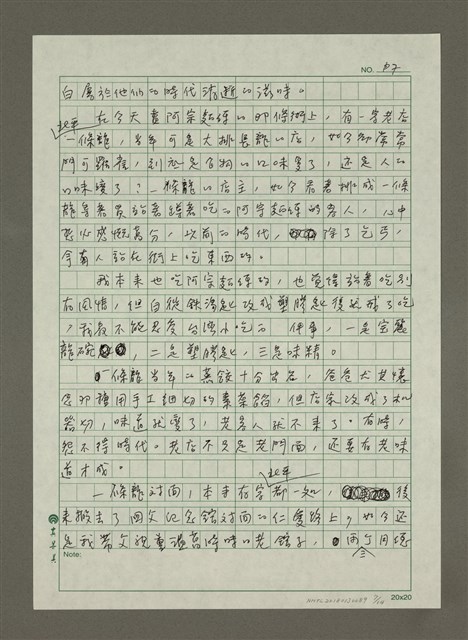 NO. 67
白屬於他們的時代清甜的滋味。
在今天賣阿宗麵線的那條街上，有一家老店
北平
一條龍，當年可是大排長龍的店，如今卻常常
門可羅雀，到底是食物的口味變了，還是人的
口味變了？一條龍的店主，如今看著排成一條
龍等著買站著蹲著吃的阿宗麵線的客人，心中
恐必感慨萬分，以前的時代，除了乞丐，
會有人站在街上吃東西的。
我本來也吃阿宗麵線的，也覺得站著吃別
有風情，但自從鐵湯匙改成塑膠匙後就戒了吃
，我最不能忍受台灣小吃的 件事，一是
龍碗，二是塑膠匙，三是味精。
一條龍當年的蒸餃十分出名，爸爸尤其懷
念那種用手工細切的素菜餡，但店家改成了機
器切，味道就變了，老客人就不來了。有時，
怨不得時代。老店不只是老門面，還要有老味
道才成。
北平
一條龍對面，本來有家都一処，後
來搬去了國父紀念館對面的仁愛路上，如今還
是我帶父親重溫舊時味的老館子，兩個用慈
三
Note:
20x20